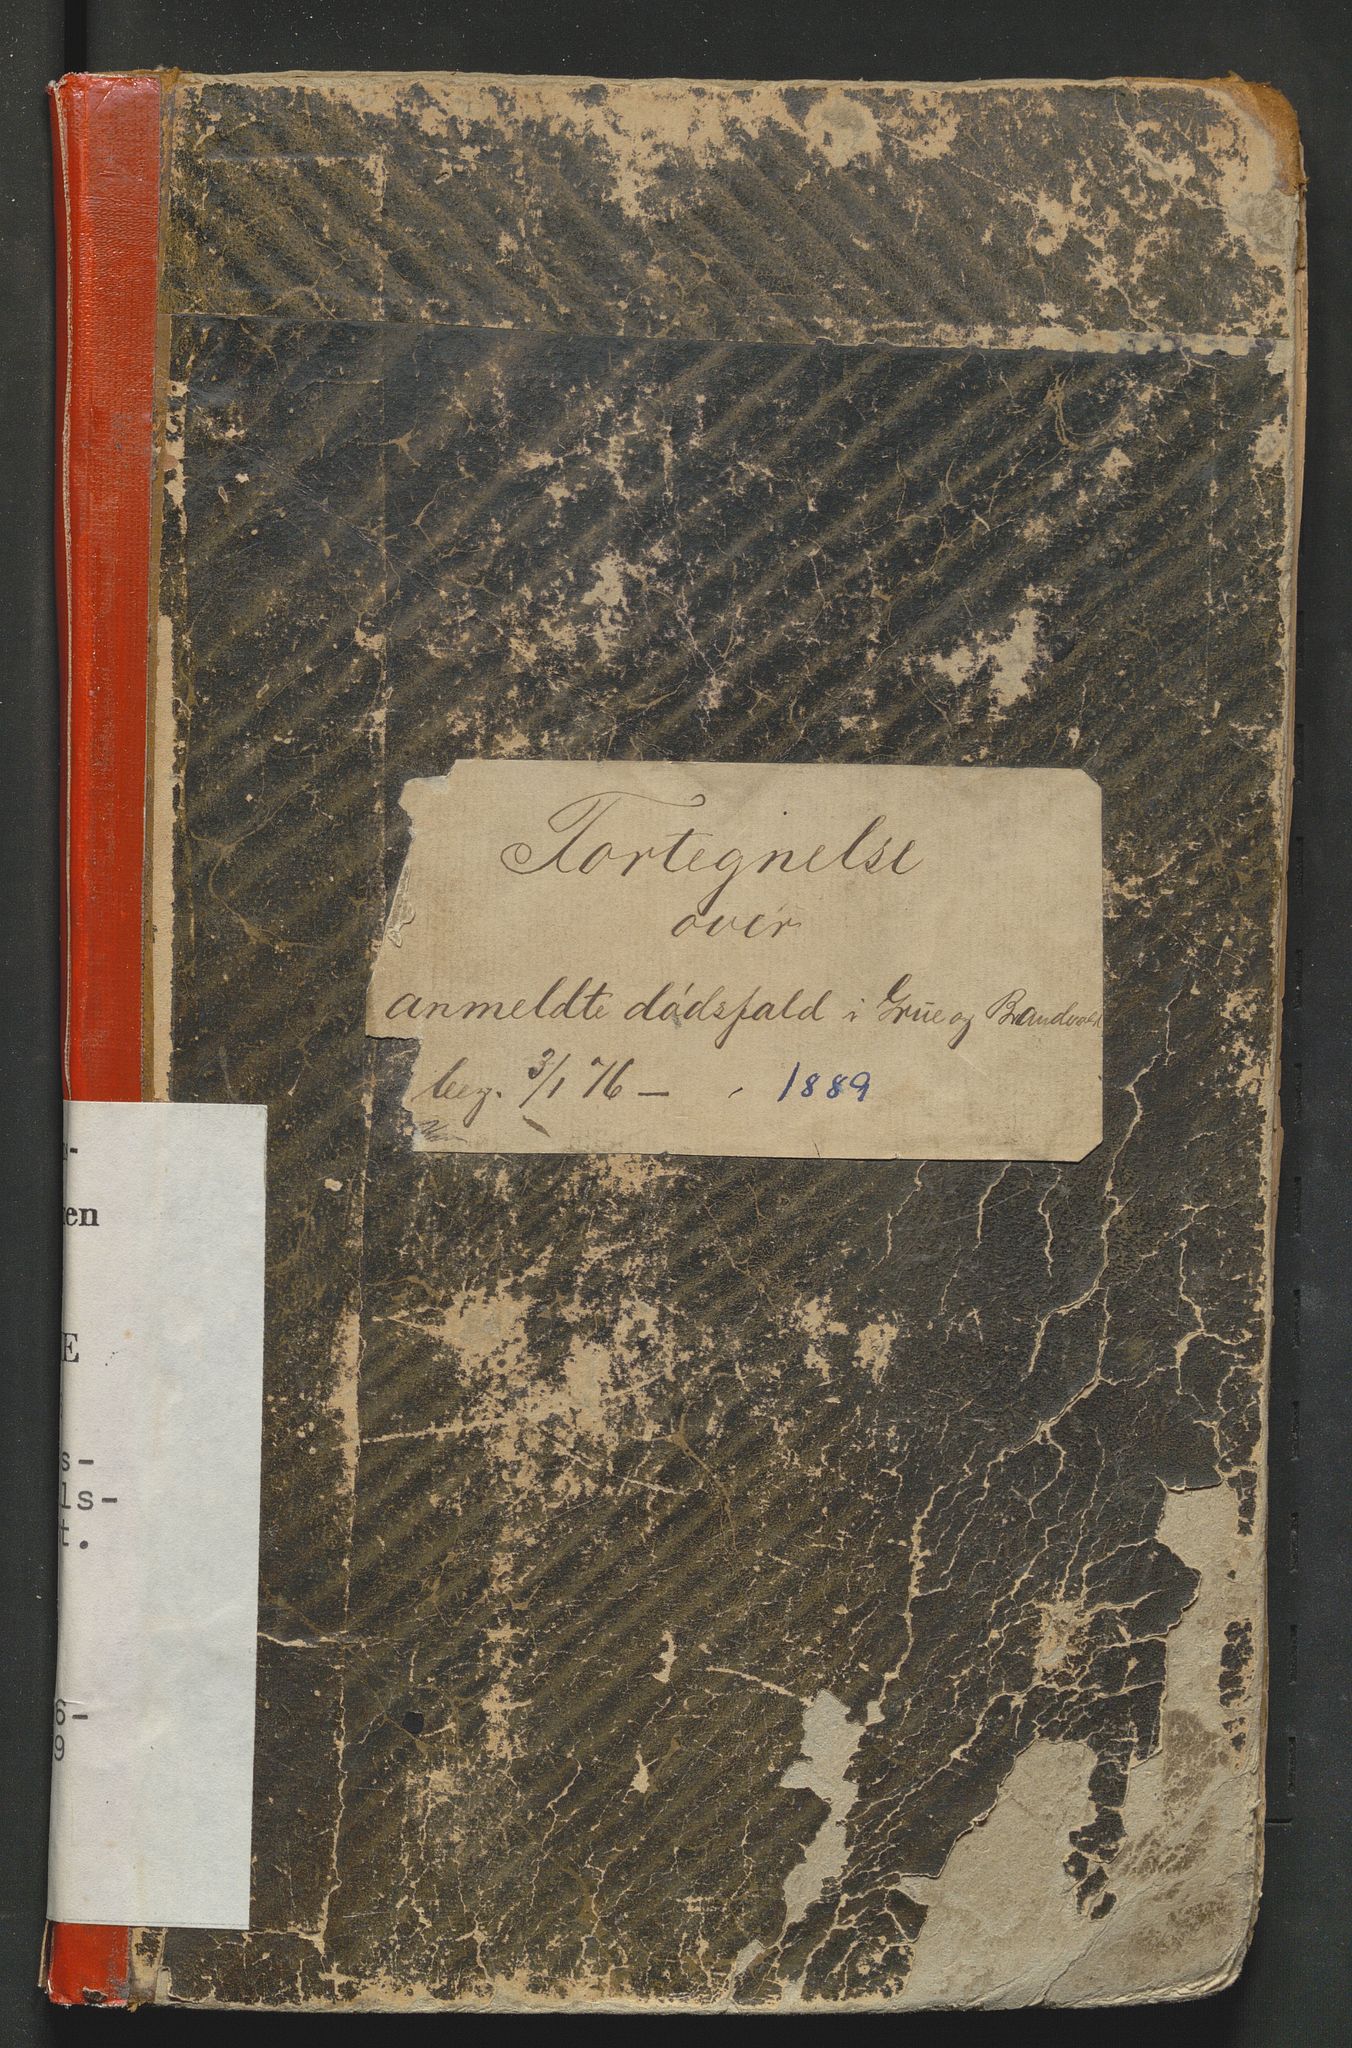 Fortegnelse
over
anmeldte dødsfald i Grue og Brandvold
beg. 3/1 76 - 1889
en
E
s-
ls-
t.
6-
9